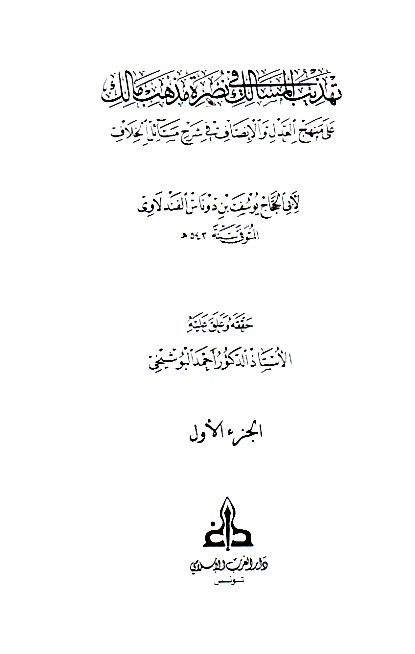 تهذيب المسالك في نصرة مذهب مالك
على منهج العدل والإنصاف في شرح مسائل الخلاف
لأبي الحجاج يوسف بن دوناس الفندلاوي
المتوفى سنة ٥٤٣ هـ
حققه وعلق عليه
الأستاذ الدكتور أحمد البوشيخي
الجزء الأول
دار الغرب الإسلامي
تونس